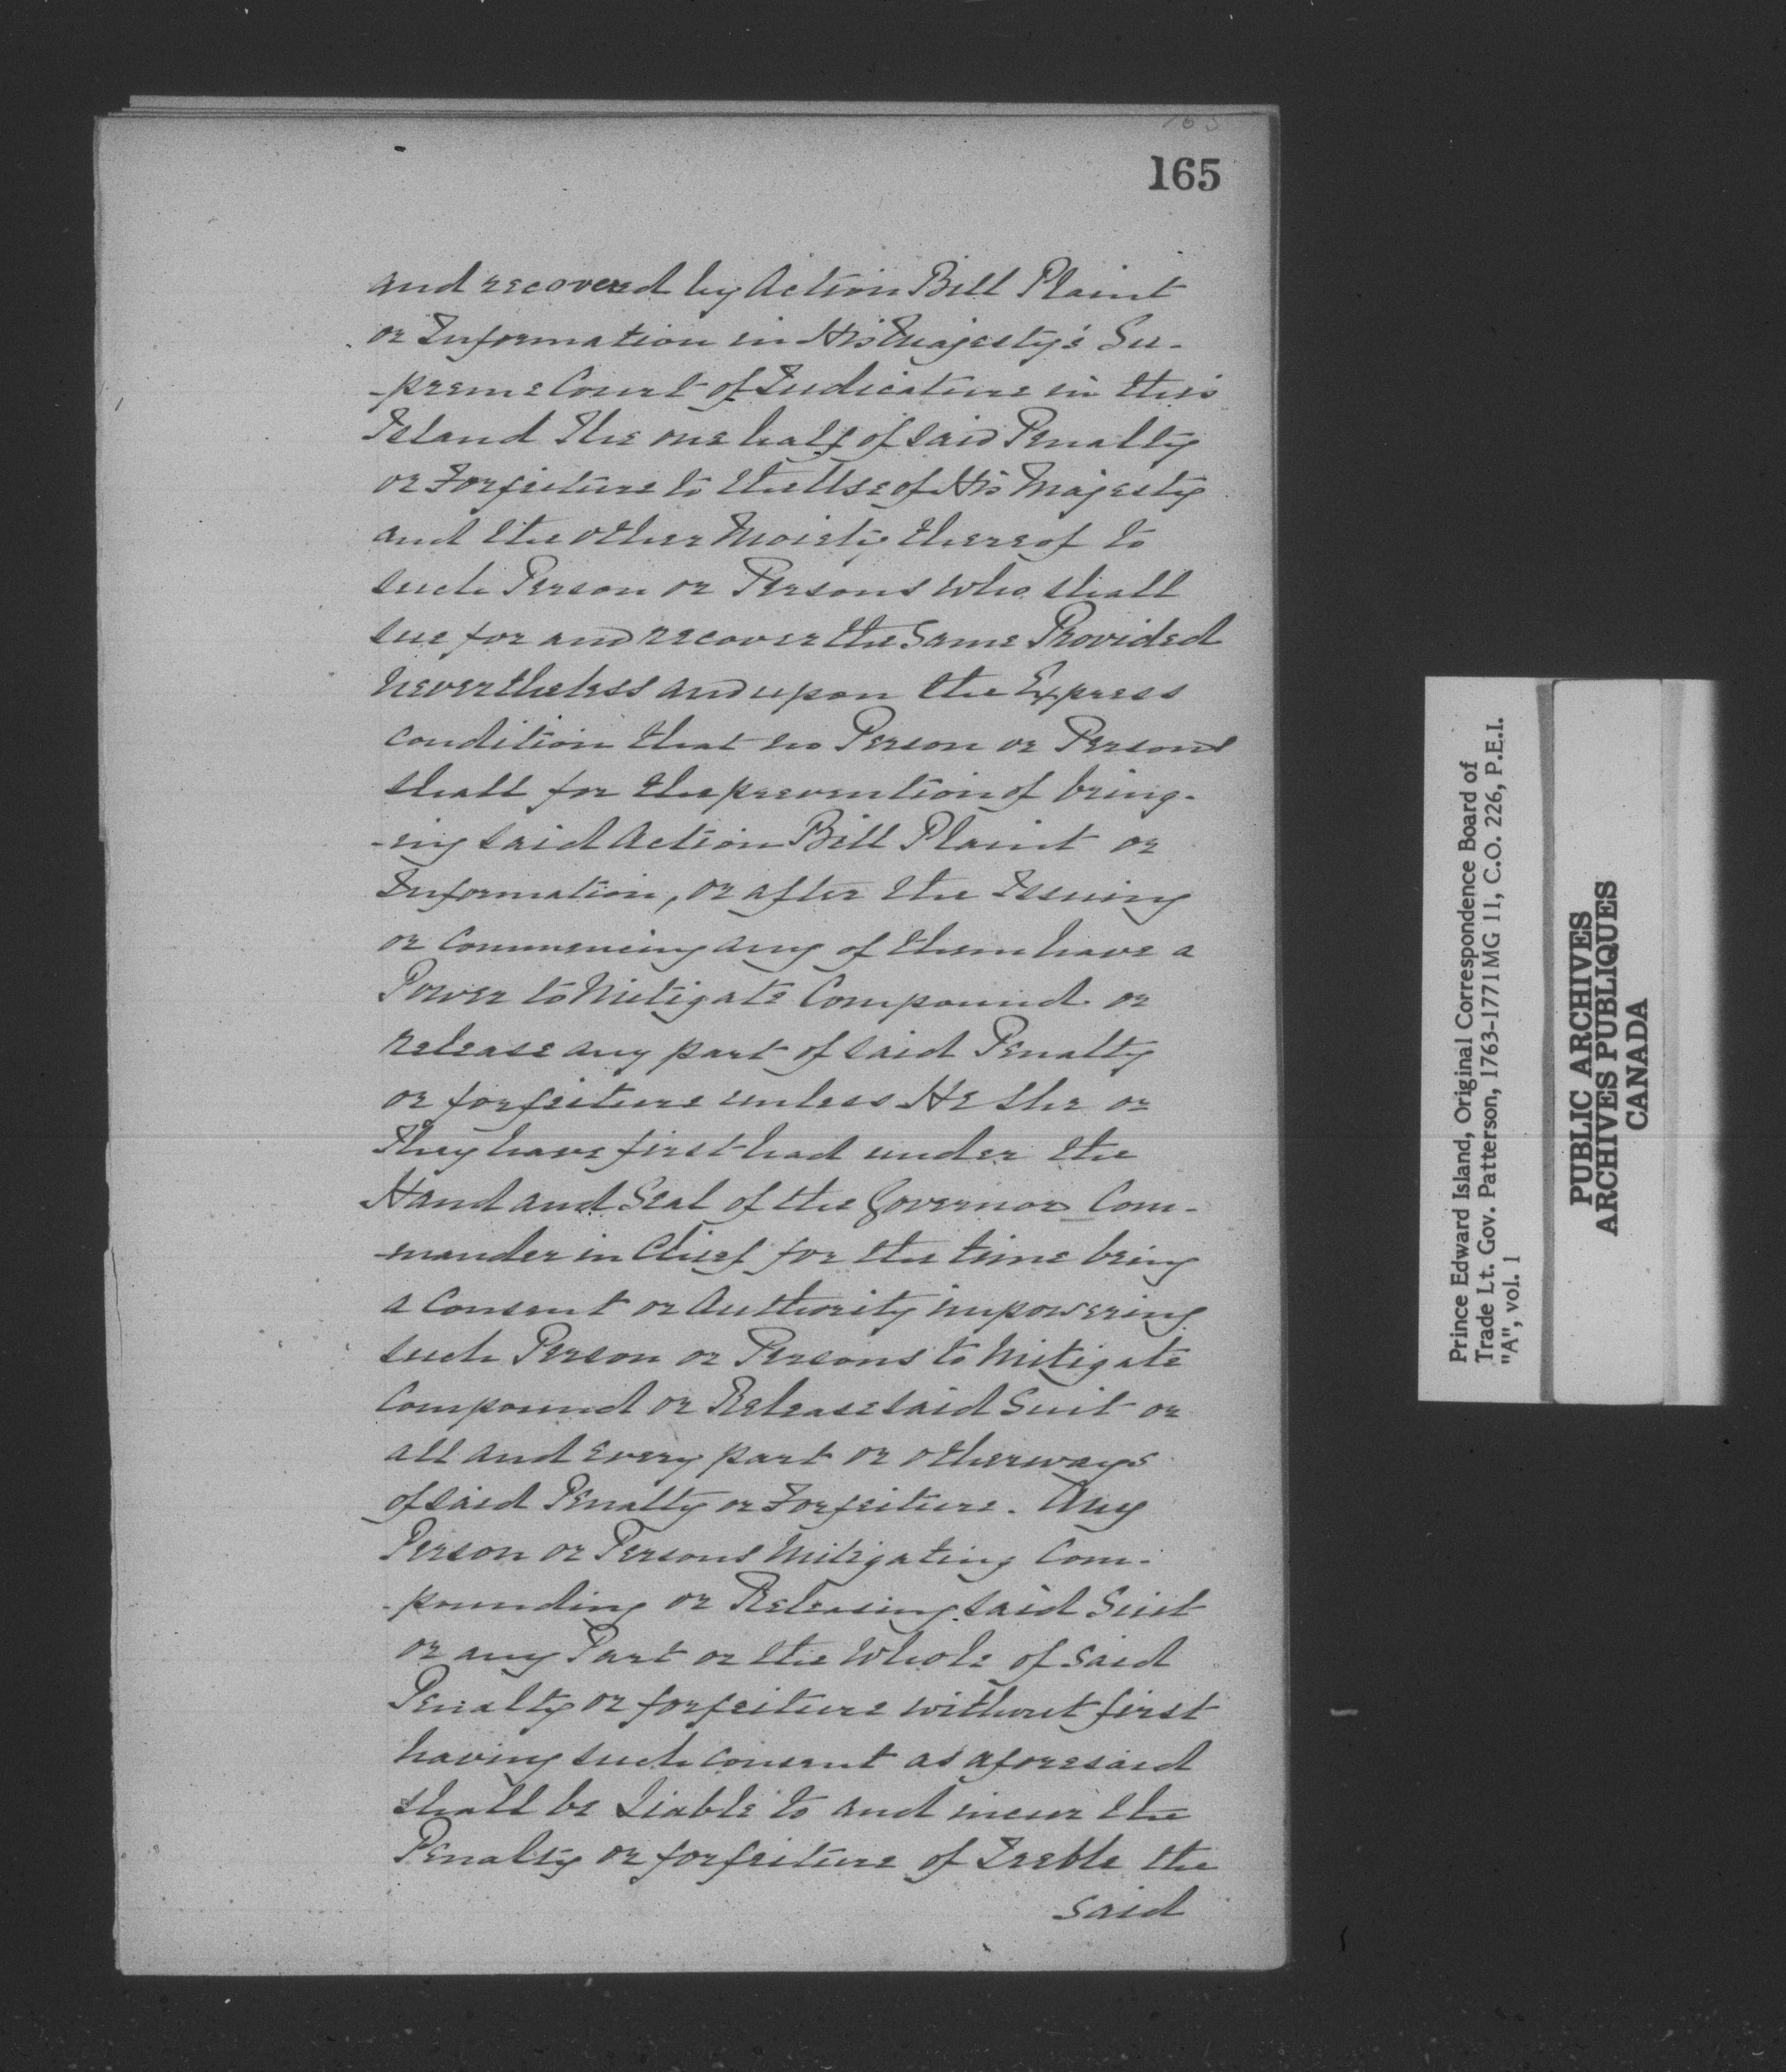 165
and recovered by Action Bill Plaint
or Information in His Majesty's Su-
-preme Court of Judicature in this
Island The one half of said Penalty
or Forfeiture to the Use of His Majesty
and the other Moiety thereof to
such Person or Persons who shall
sue for and recover the Same Provided
Nevertheless and upon the Express
Condition that no Person or Persons
shall for the prevention of bring-
-ing said Action Bill Plaint or
Information, or after the Issuing
or Commencing any of them have a
Power to Mitigate Compound or
Release any part of said Penalty
or forfeiture unless He She or
They have first had under the
Hand and Seal of the Governor Com-
-mander in Chief for the time being
a Consent or Authority impowering
such Person or Persons to Mitigate
Compound or Release said Suit or
all and Every part or otherways
of said Penalty or Forfeiture. Any
Person or Persons Mitigating Com-
-pounding or Releasing said Suit
or any Part or the Whole of said
Penalty or forfeiture without first
having such Consent as aforesaid
shall be Liable to and incur the
Penalty or forfeiture of Treble the
said
Prince Edward Island, Original Correspondence Board of
Trade Lt. Gov. Patterson, 1763-1771 MG 11, C.O. 226, P.E.I.
"A", vol. 1
PUBLIC ARCHIVES
ARCHIVES PUBLIQUES
CANADA